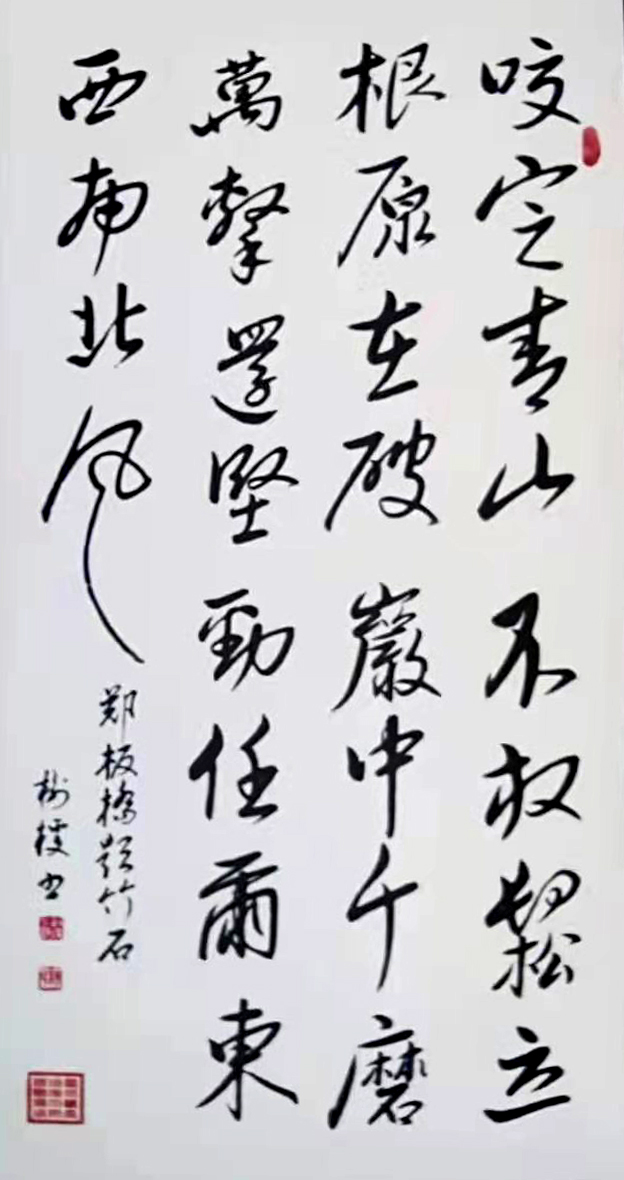 咬定青山不放鬆立
根原在破巖中千磨
萬擊還堅勁任爾東
西南北風
郑板橋題竹石
樹書